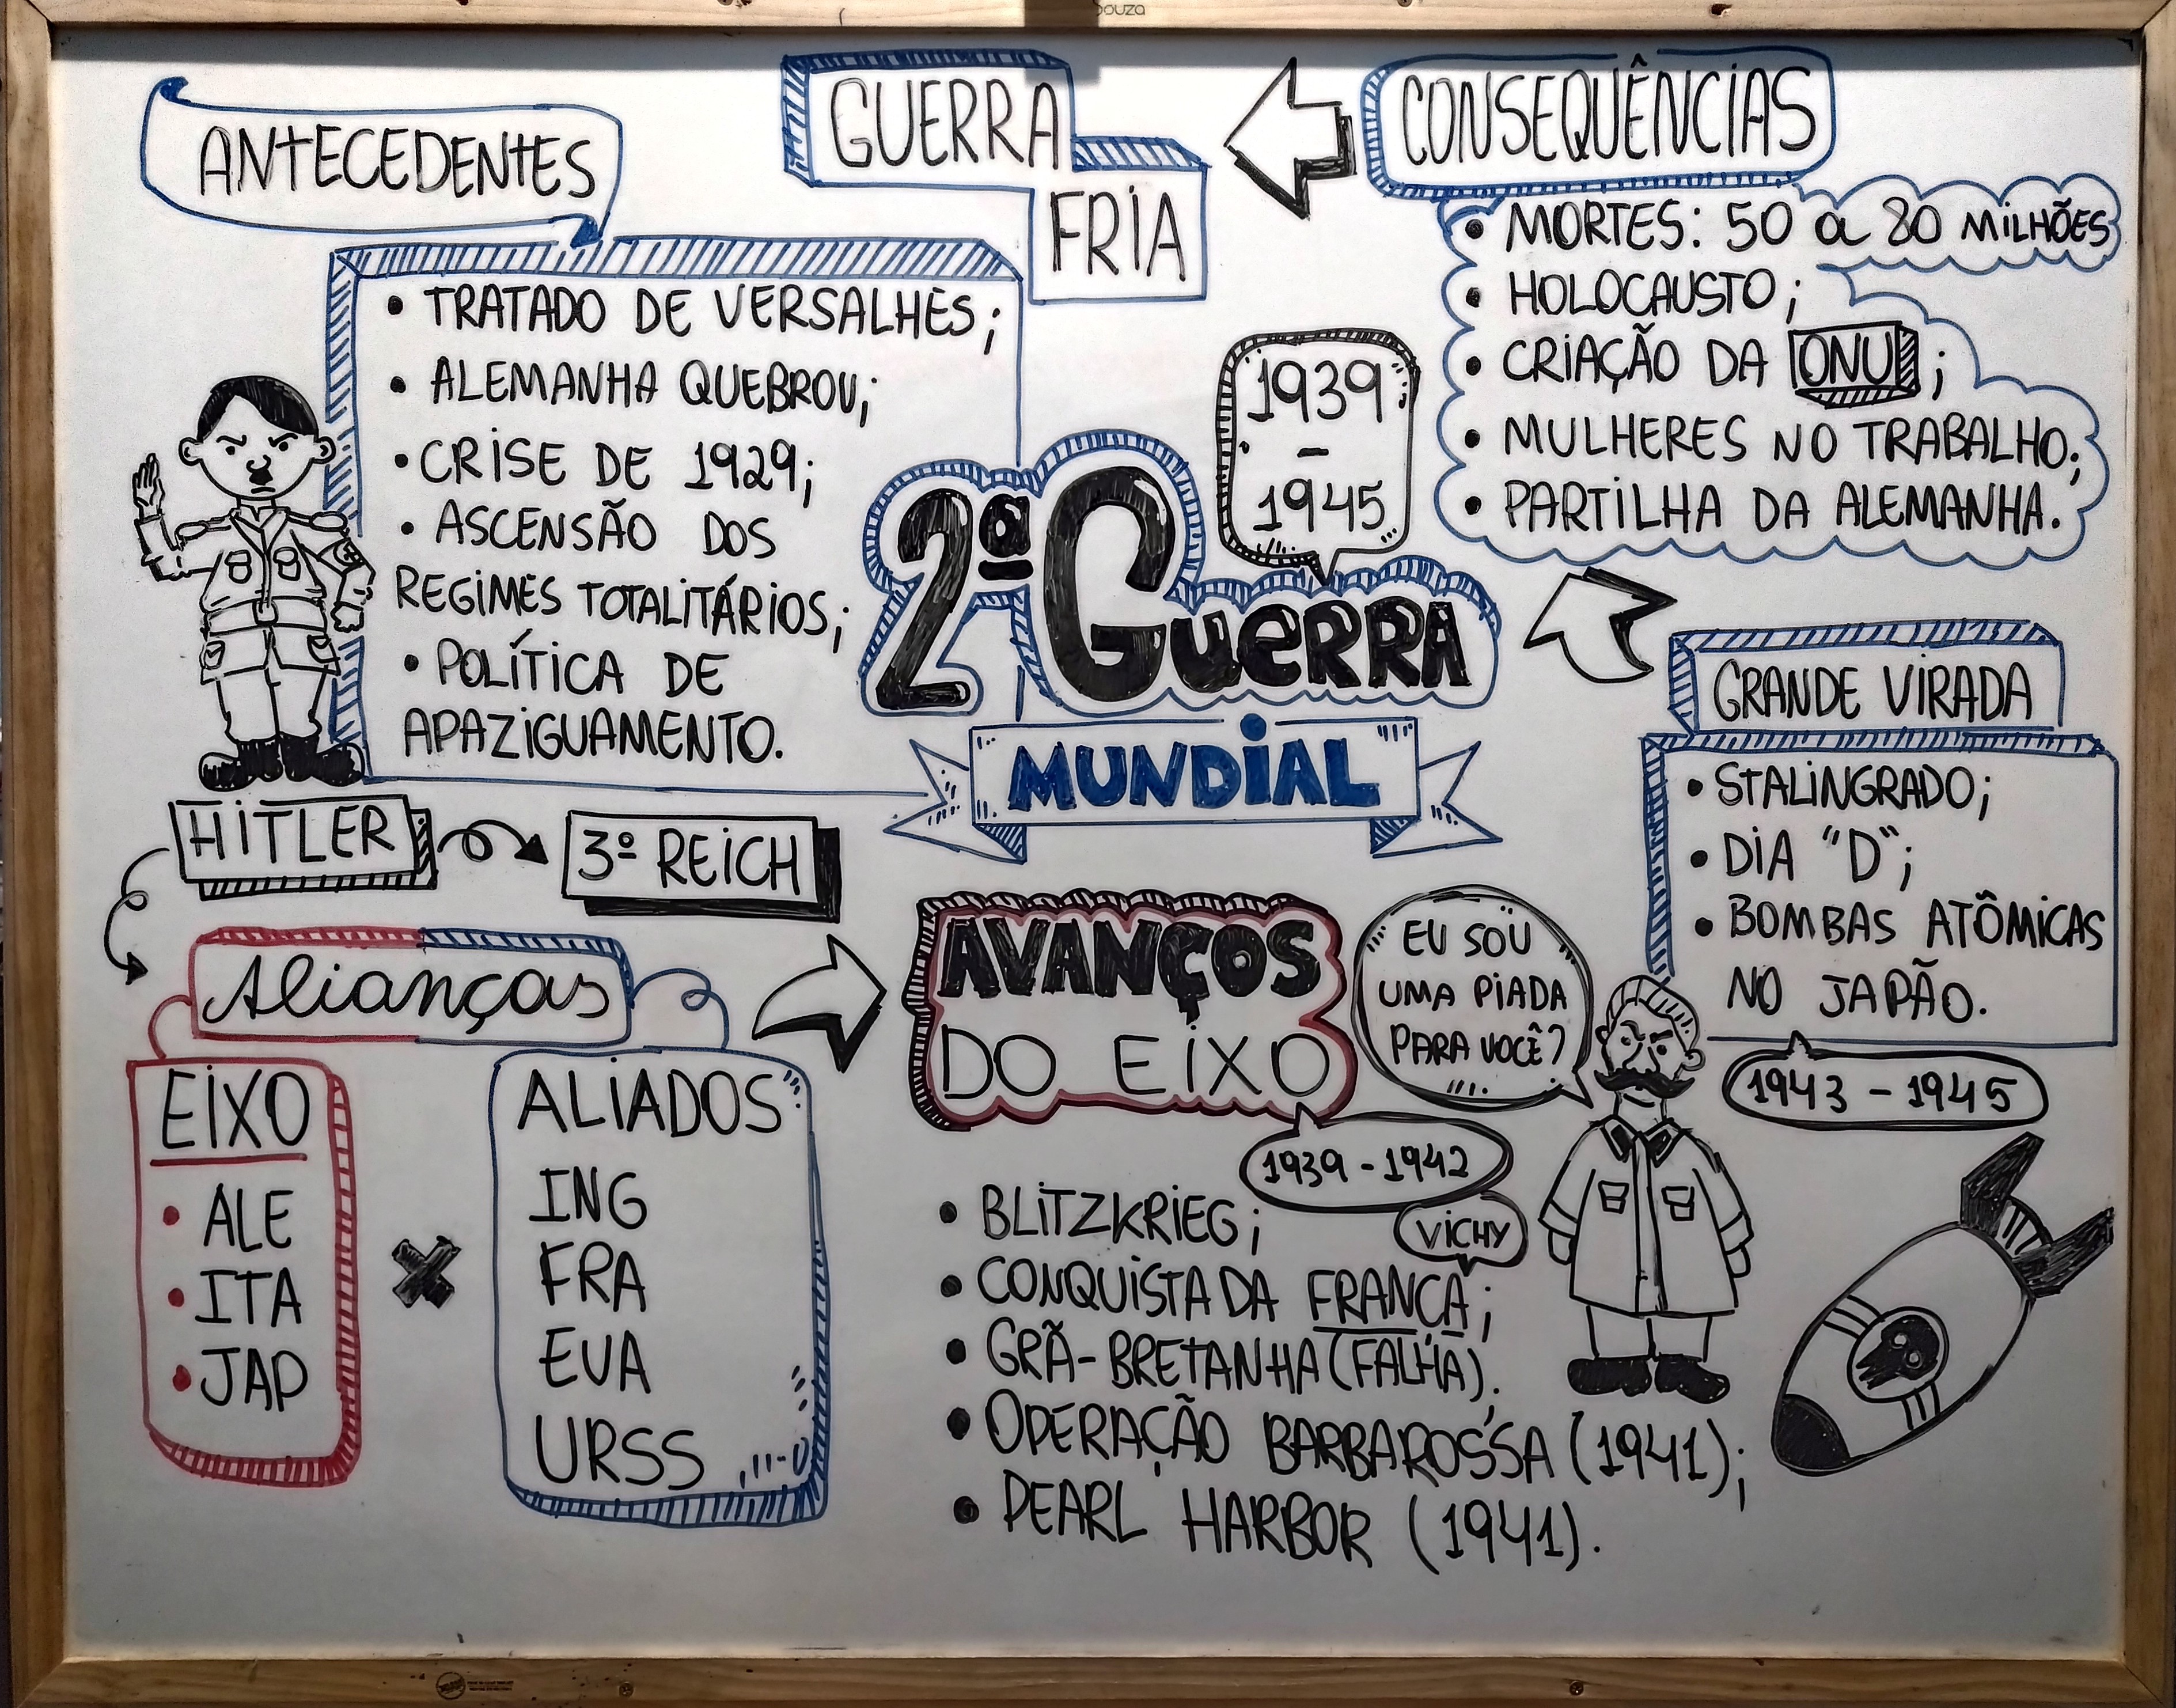 Souza
ANTECEDENTES
• TRATADO DE VERSALHES;
• ALEMANHA QUEBROU;
• CRISE DE 1929;
• ASCENSÃO DOS
REGIMES TOTALITÁRIOS;
• POLÍTICA DE
APAZIGUAMENTO.
GUERRA
FRIA
CONSEQUÊNCIAS
• MORTES: 50 a 80 MILHÕES
• HOLOCAUSTO;
• CRIAÇÃO DA ONU;
• MULHERES NO TRABALHO;
• PARTILHA DA ALEMANHA.
1939
-
1945
2ª GUERRA
MUNDIAL
GRANDE VIRADA
• STALINGRADO;
• DIA "D";
• BOMBAS ATÔMICAS
NO JAPÃO.
1943 - 1945
HITLER
3º REICH
Alianças
EIXO
• ALE
• ITA
• JAP
ALIADOS
ING
FRA
EUA
URSS
AVANÇOS
DO EIXO
1939 - 1942
EU SOU
UMA PIADA
PARA VOCÊ?
• BLITZKRIEG;
VICHY
• CONQUISTA DA FRANÇA;
• GRÃ-BRETANHA (FALHA);
• OPERAÇÃO BARBAROSSA (1941);
• PEARL HARBOR (1941).